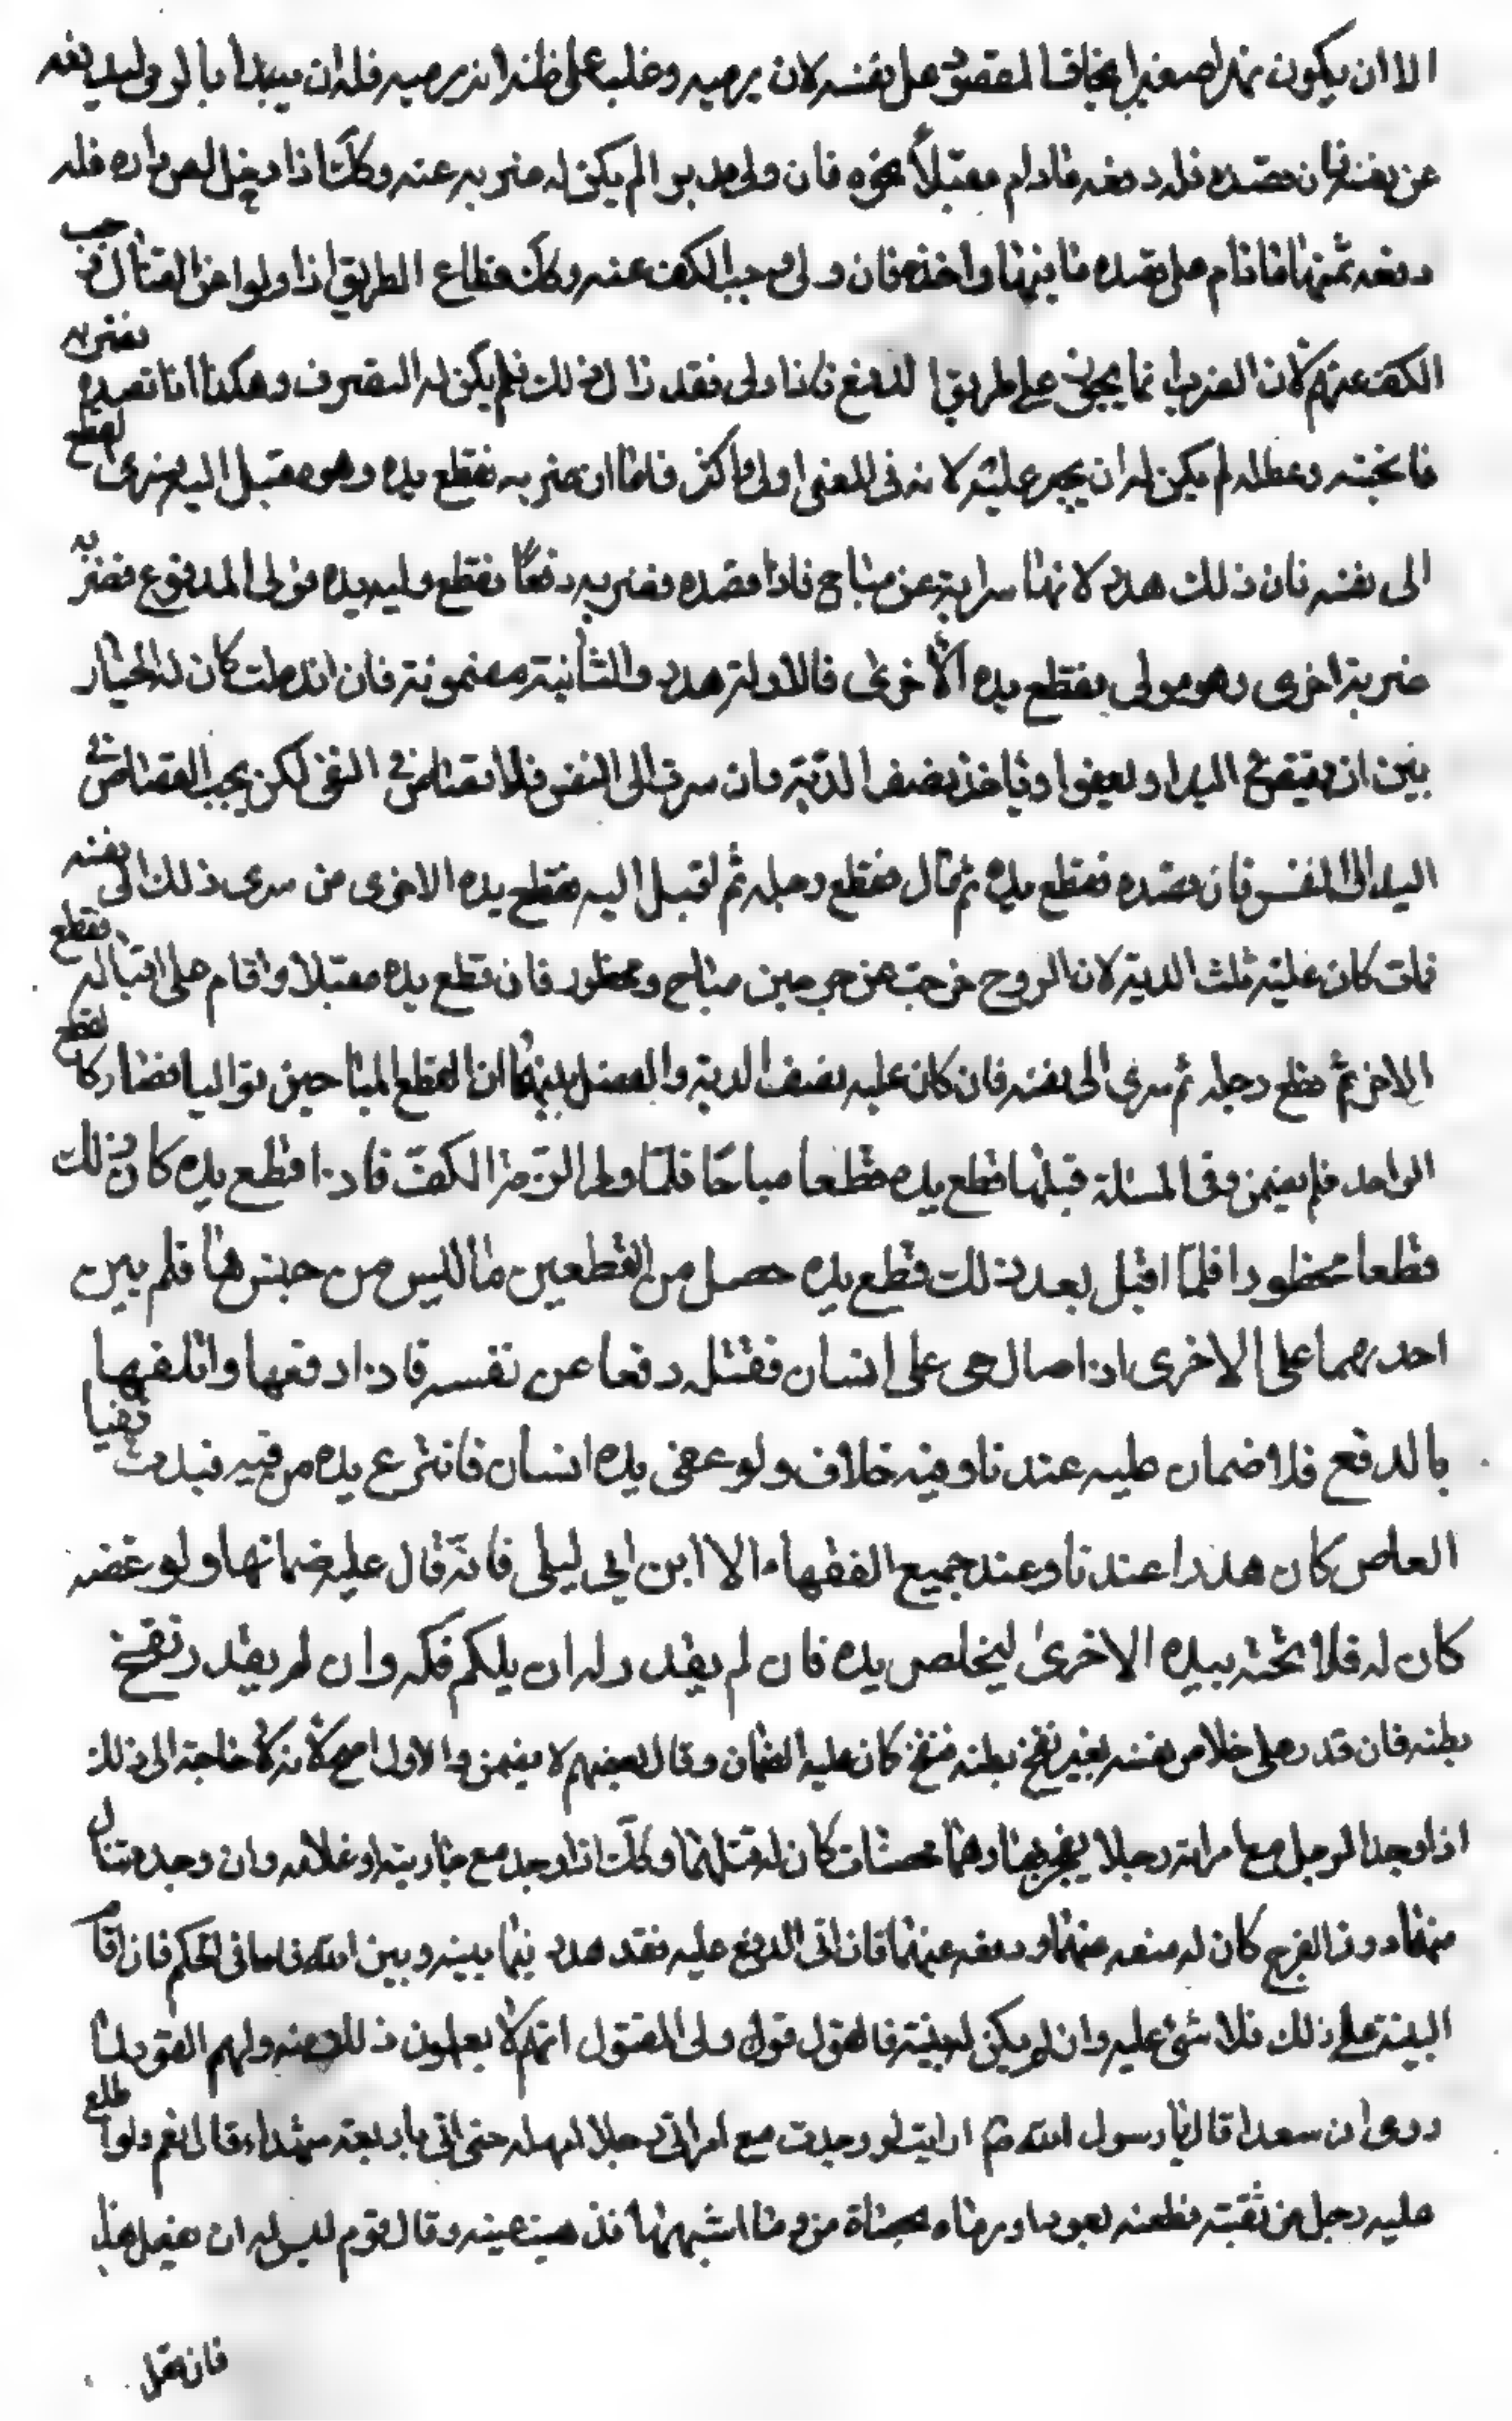 الا ان يكون نهرا صغيرا يخاف المقصود على نفسه لان يرميه وغلب على ظنه انه يرميه فله ان يبدأ بالرمى ليدفعه
عن نفسه فان قصده فله دفعه مادام مقبلاً نحوه فان ولى مدبرا لم يكن له ضربه عنه وكك اذا دخل لص داره فله
دفعه عنها فاذا قام على قصده فاينها واخذه فان ولى وجب الكف عنه وكك قطاع الطريق اذا ولوا عن القتال وجب
الكف عنهم لان الضرب انما يجوز على طريق الدفع فاذا ولى فقد زال ذلك فلم يكن له التصرف وهكذا اذا قصده فضربه
فاثخنه وعطله لم يكن له ان يجهز عليه لانه فى المعنى اولى واكثر فاما ان ضربه فقطع يده وهو مقبل اليه فسرى القطع
الى نفسه فان ذلك هدر لانها سراية عن مباح فاذا قصده فضربه دفعًا فقطع يده فولى المدفوع فضربه
ضربة اخرى وهو مولى فقطع يده الأخرى فالاولة هدر والثانية مضمونة فان اندملت كان له الخيار
بين ان يقتص فى اليد او يعفوا وياخذ نصف الدية وان سرت الى النفس فلا قصاص فى النفس لكن يجب القصاص فى
اليد الى النفس فان قصده فقطع يده ثم قال فقطع رجله ثم اقبل اليه فقطع يده الاخرى من سرى ذلك الى نفسه
فمات كان عليه ثلث الدية لان الروح خرجت عن جرحين مباح ومحظور فان قطع يده مقبلا واقام على اقباله فقطع
الاخرى ثم قطع رجله ثم سرى الى نفسه فان كان عليه نصف الدية والفصل بينهما ان القطع المباحين تواليا فصار كالقطع
الواحد فلم يضمن وفى المسئلة قبلها قطع يده قطعا مباحًا فلمّا ولى الزمه الكفّ فاذا قطع يده كان ذلك
قطعا محظورا فلمّا اقبل بعد ذلك قطع يده حصل من القطعين ما ليس من جنسها فلم يبن
احديهما على الاخرى اذا صال حى على انسان فقتله دفعا عن نفسه فاذا دفعها واتلفها
بالدفع فلا ضمان عليه عندنا وفيه خلاف ولو عض يده انسان فانتزع يده من فيه فبدت ثنيا
العاض كان هدرا عندنا وعند جميع الفقهاء الا ابن ابى ليلى فانّه قال عليه ضمانها ولو عضه
كان له فلا تحته بيده الاخرى ليخلص يده فان لم يقدر له ان يلكم فكه وان لم يقدر نفخ
بطنه فان قدر على خلاص نفسه بغير نفخ بطنه فنفخ كان عليه الضمان وقال بعضهم لا يضمن والاول اصح لانه لا حاجة الى ذلك
اذا وجد الرجل مع امراته رجلا يفجر بها وهما محصنات كان له قتلهما وكك اذا وجد مع جاريته او غلامه وان وجده ينال
منها دون الفرج كان له منعه منها ودفعه عنها فان اتى الدفع عليه فقد هدر فيما بينه وبين الله فاما فى الحكم فان اقا
البينة على ذلك فلا شئ عليه وان لم يكن له بينة فالقول قول ولى المقتول انهم لا يعلمون ذلك منه ولهم القود لما
روى ان سعدا قال يا رسول الله ص ارايت لو وجدت مع امراتى رجلا امهله حتى اتى باربعة شهداء قال نعم ولو اطلع
عليه رجل من ثقبته فطعنه بعود او رماه بحصاة من وما اشبهها فذهبت عينه وقال قوم ليس له ان يفعل هذا
فان فعل